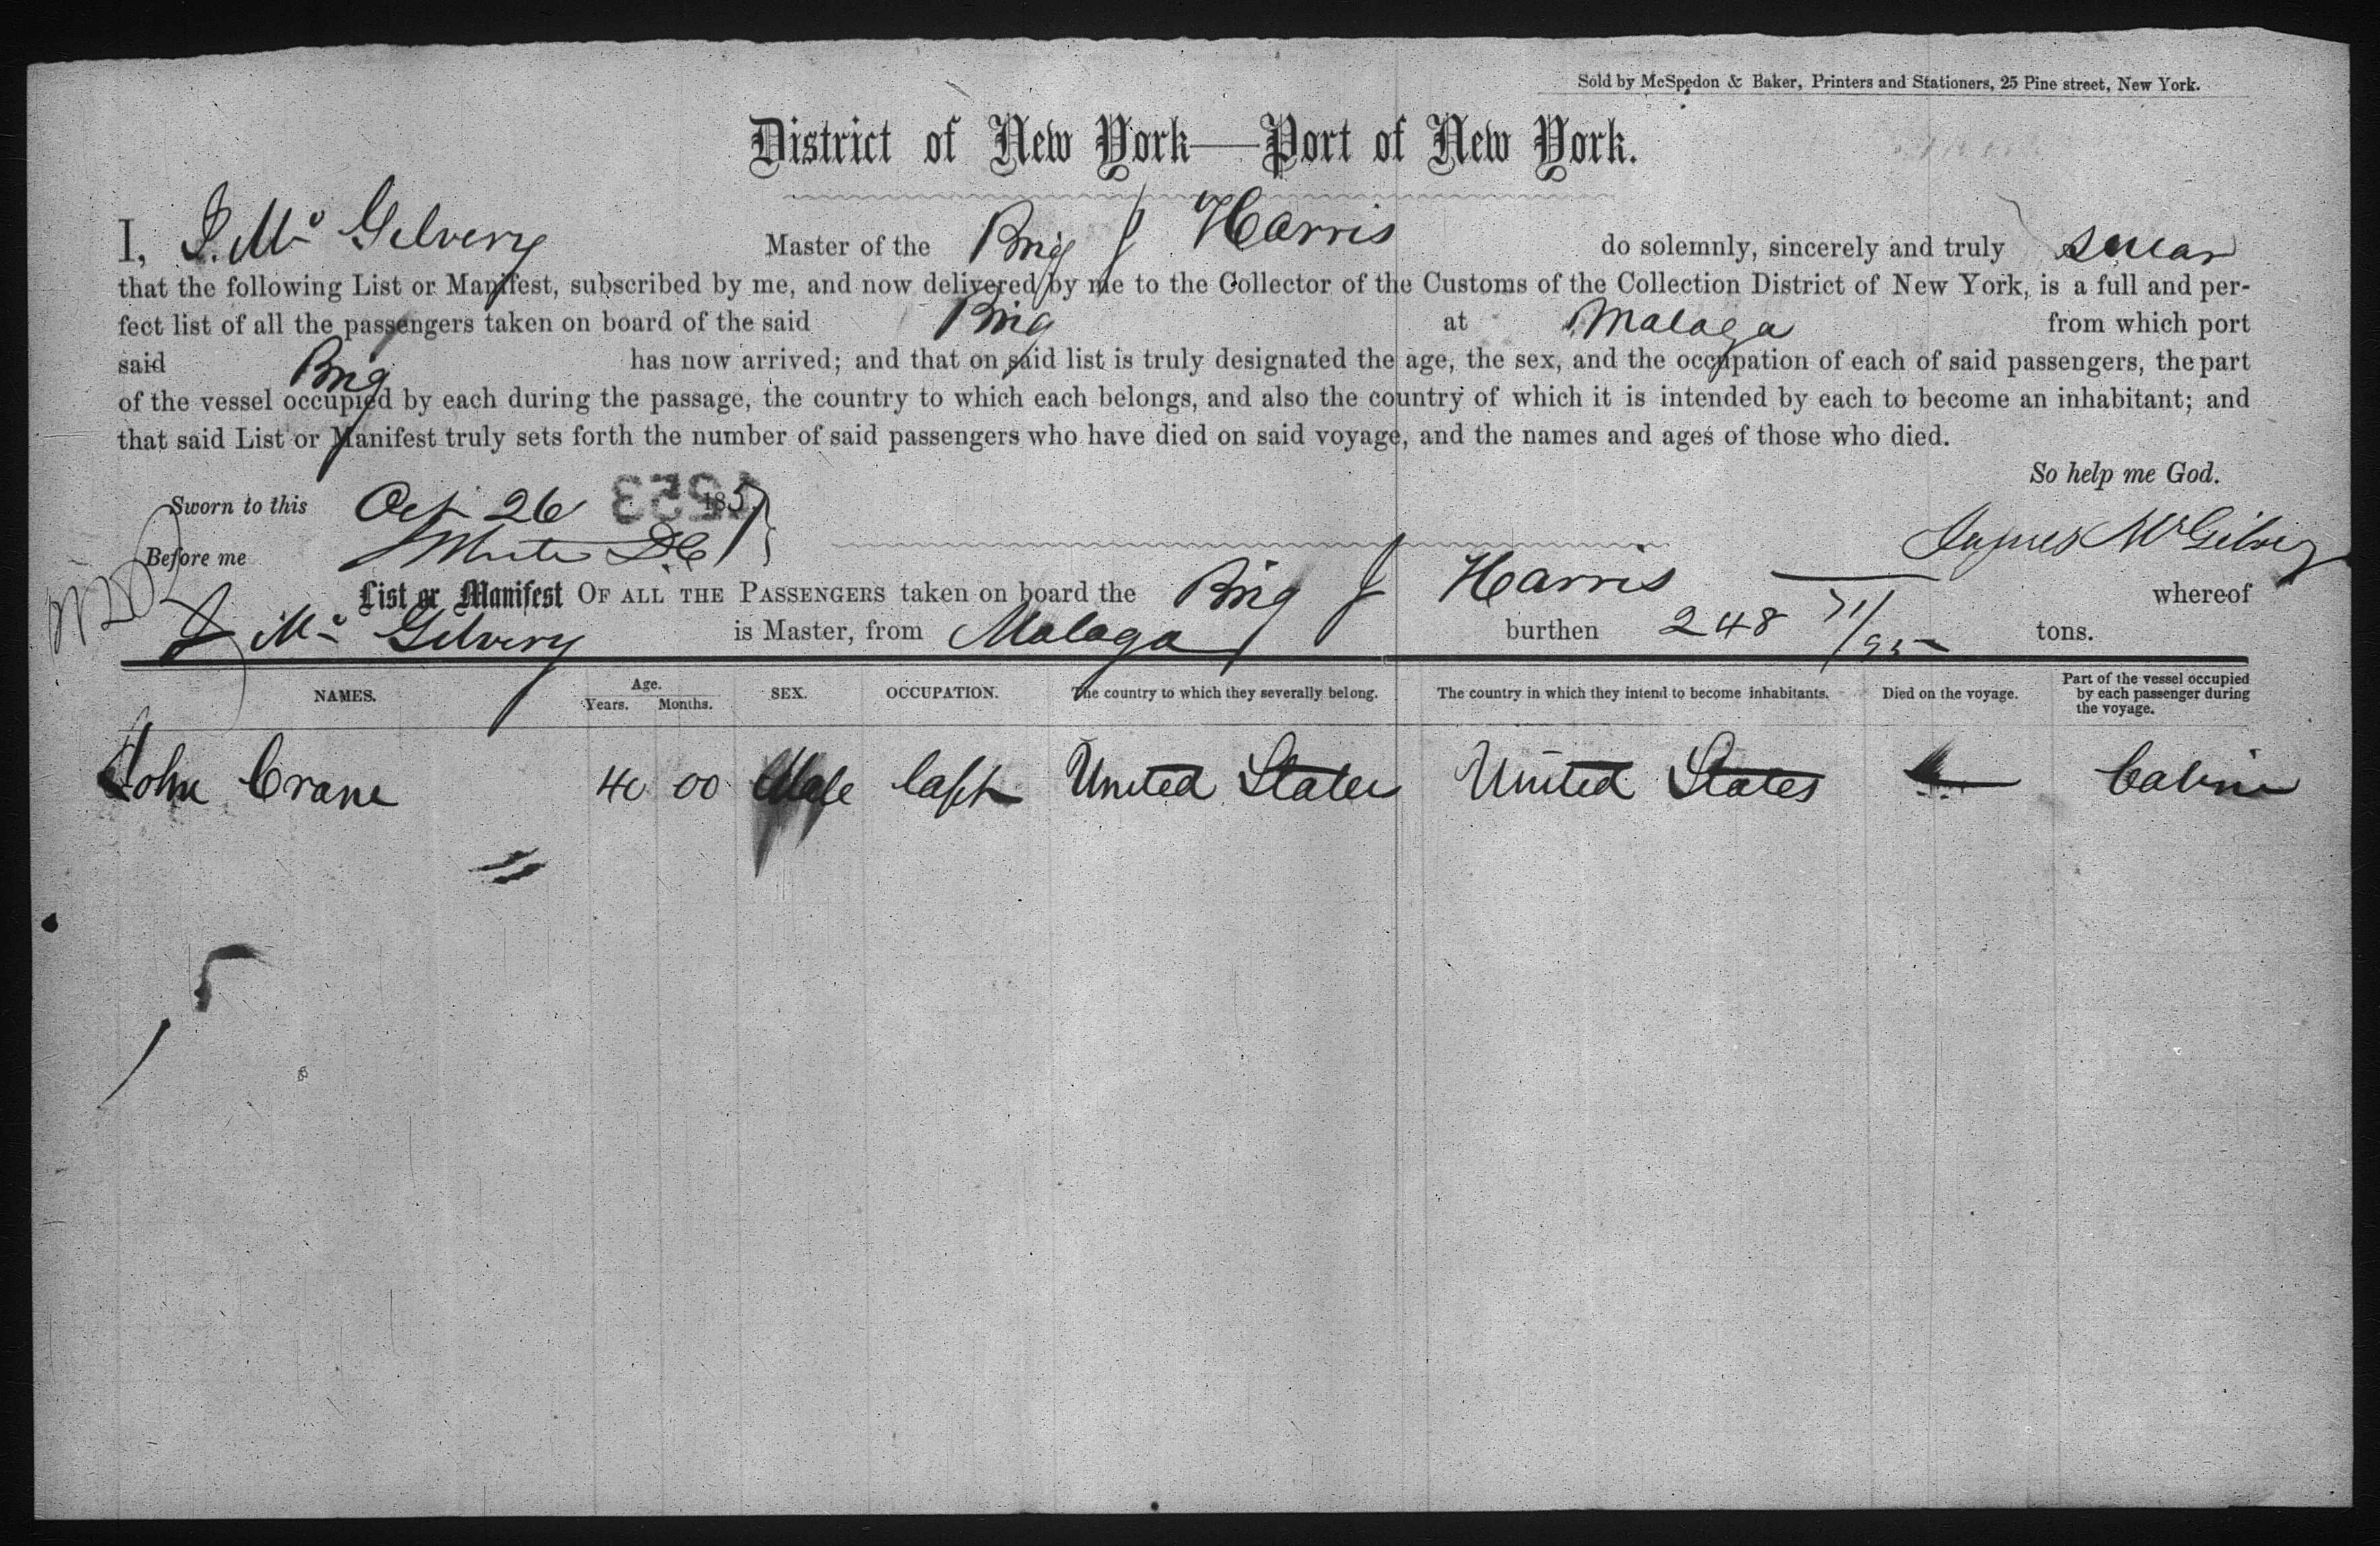 Sold by McSpedon & Baker, Printers and Stationers, 25 Pine street, New York.
District of New York—Port of New York.
I, J. Mc Gilvery Master of the Brig J Harris do solemnly, sincerely and truly swear
that the following List or Manifest, subscribed by me, and now delivered by me to the Collector of the Customs of the Collection District of New York, is a full and per-
fect list of all the passengers taken on board of the said Brig at Malaga from which port
said Brig has now arrived; and that on said list is truly designated the age, the sex, and the occupation of each of said passengers, the part
of the vessel occupied by each during the passage, the country to which each belongs, and also the country of which it is intended by each to become an inhabitant; and
that said List or Manifest truly sets forth the number of said passengers who have died on said voyage, and the names and ages of those who died.
So help me God.
Sworn to this Oct 26 1857
Before me White D.C. James McGilvery
List or Manifest OF ALL THE PASSENGERS taken on board the Brig J Harris whereof
J Mc Gilvery is Master, from Malaga burthen 248 71/95 tons.
NAMES. Age. Years. Months. SEX. OCCUPATION. The country to which they severally belong. The country in which they intend to become inhabitants. Died on the voyage. Part of the vessel occupied by each passenger during the voyage.
John Crane 40 00 Male Capt United States United States Cabin